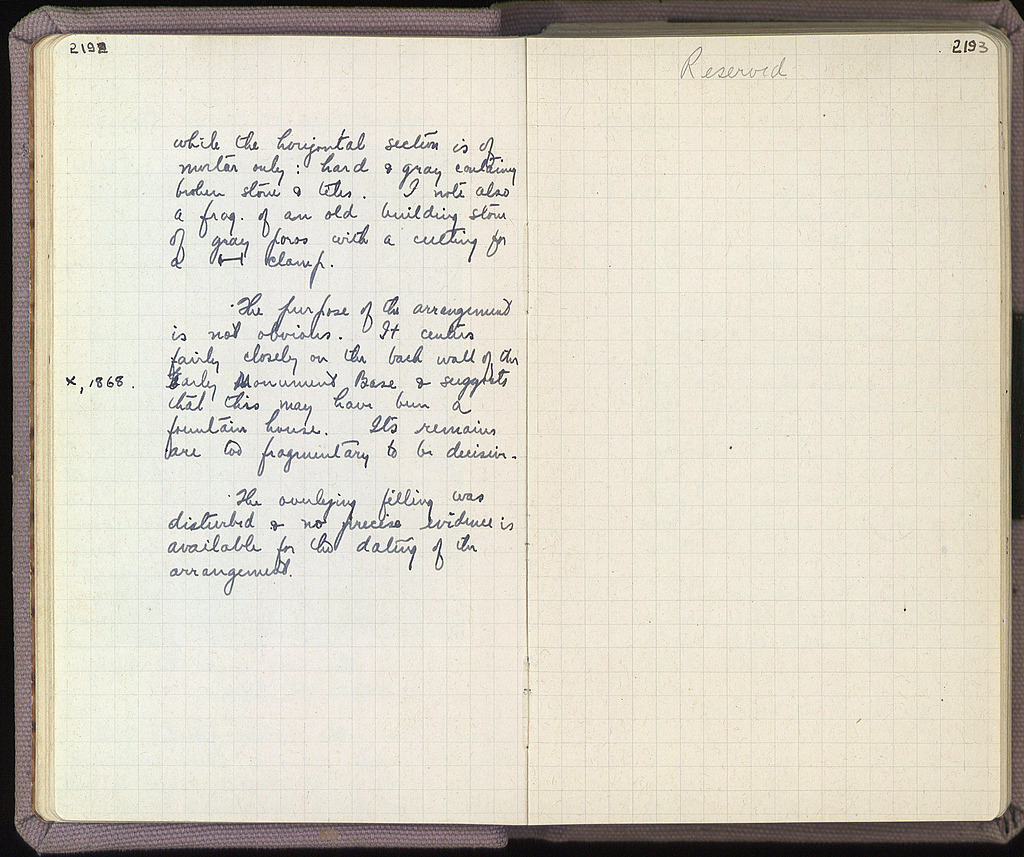 2192
while the horizontal section is of
mortar only: hard & gray containing
broken stone & tiles. I note also
a frag. of an old building stone
of gray poros with a cutting for
a clamp.
The purpose of the arrangement
is not obvious. It centers
fairly closely on the back wall of the
X, 1868. Early Monument Base & suggests
that this may have been a
fountain house. Its remains
are too fragmentary to be decisive.
The overlying filling was
disturbed & no precise evidence is
available for the dating of the
arrangement.
2193
Reserved